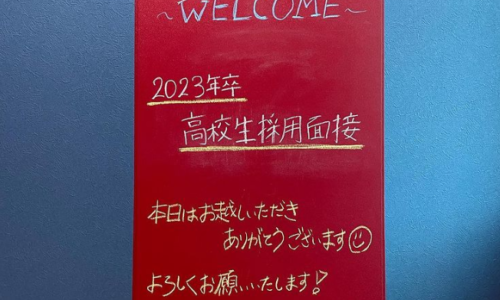 ～WELCOME～
2023年卒
高校生採用面接
本日はお越しいただき
ありがとうございます☺
よろしくお願いいたします!